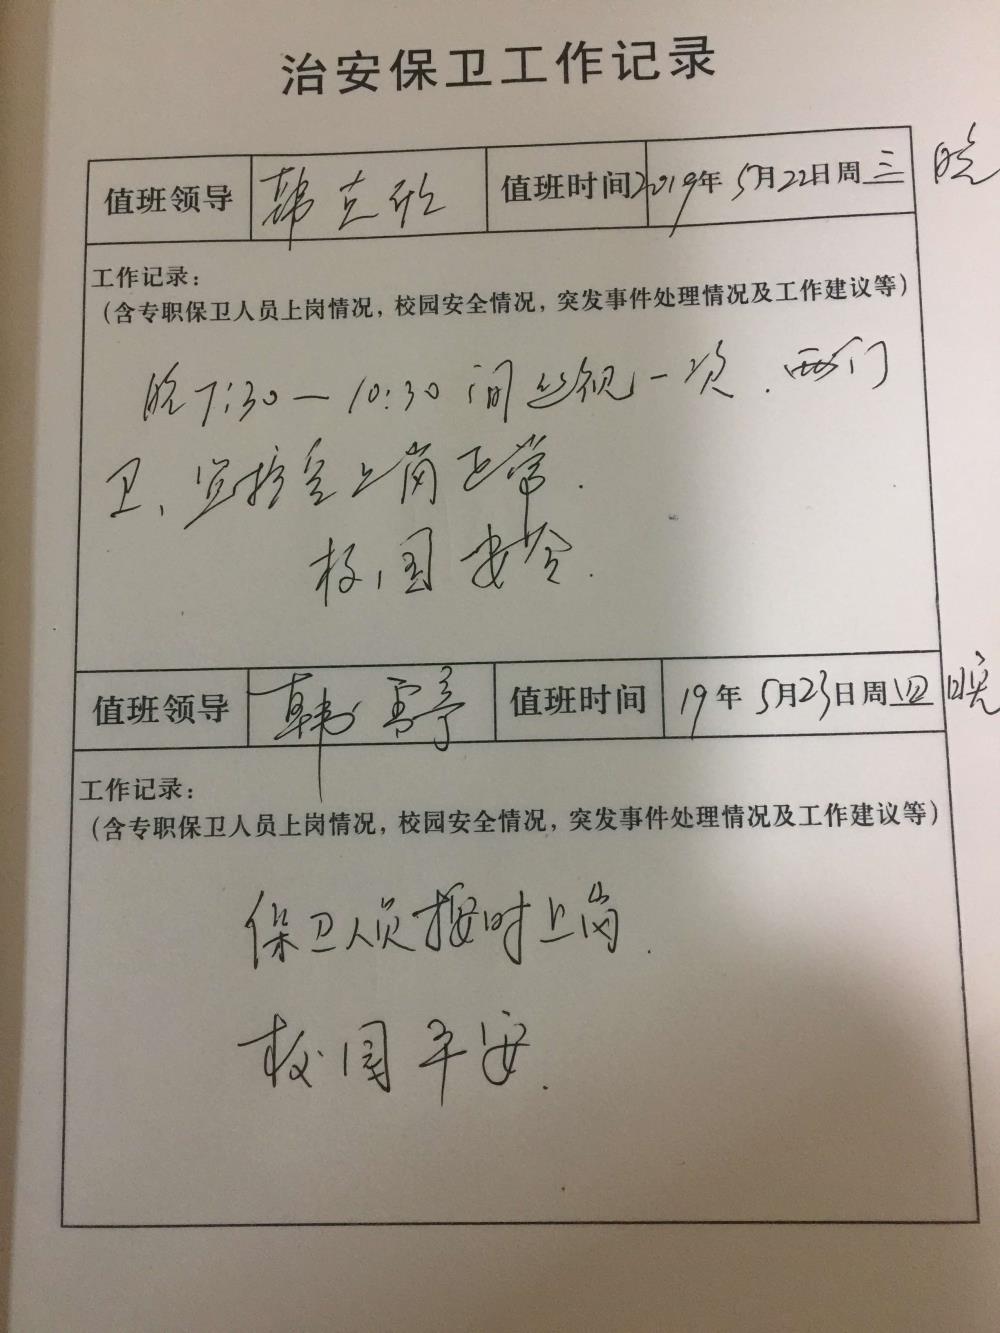 治安保卫工作记录
值班领导 韩克欣 值班时间 2019年5月22日周三 晚
工作记录：
（含专职保卫人员上岗情况，校园安全情况，突发事件处理情况及工作建议等）
晚7:30—10:30间巡视一次．两门
卫、监控室上岗正常．
校园安全．
值班领导 韩雪婷 值班时间 19年5月23日周四 晚
工作记录：
（含专职保卫人员上岗情况，校园安全情况，突发事件处理情况及工作建议等）
保卫人员按时上岗．
校园平安．